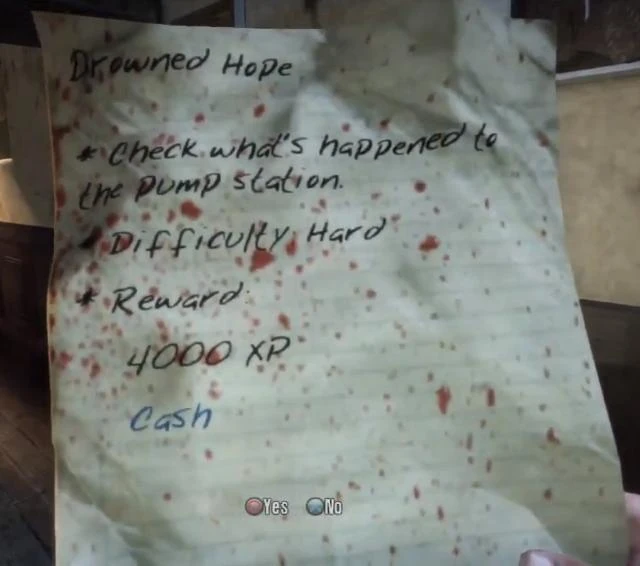 Drowned Hope
* Check what's happened to
the pump station.
* Difficulty Hard
* Reward:
4000 XP
Cash
Yes No